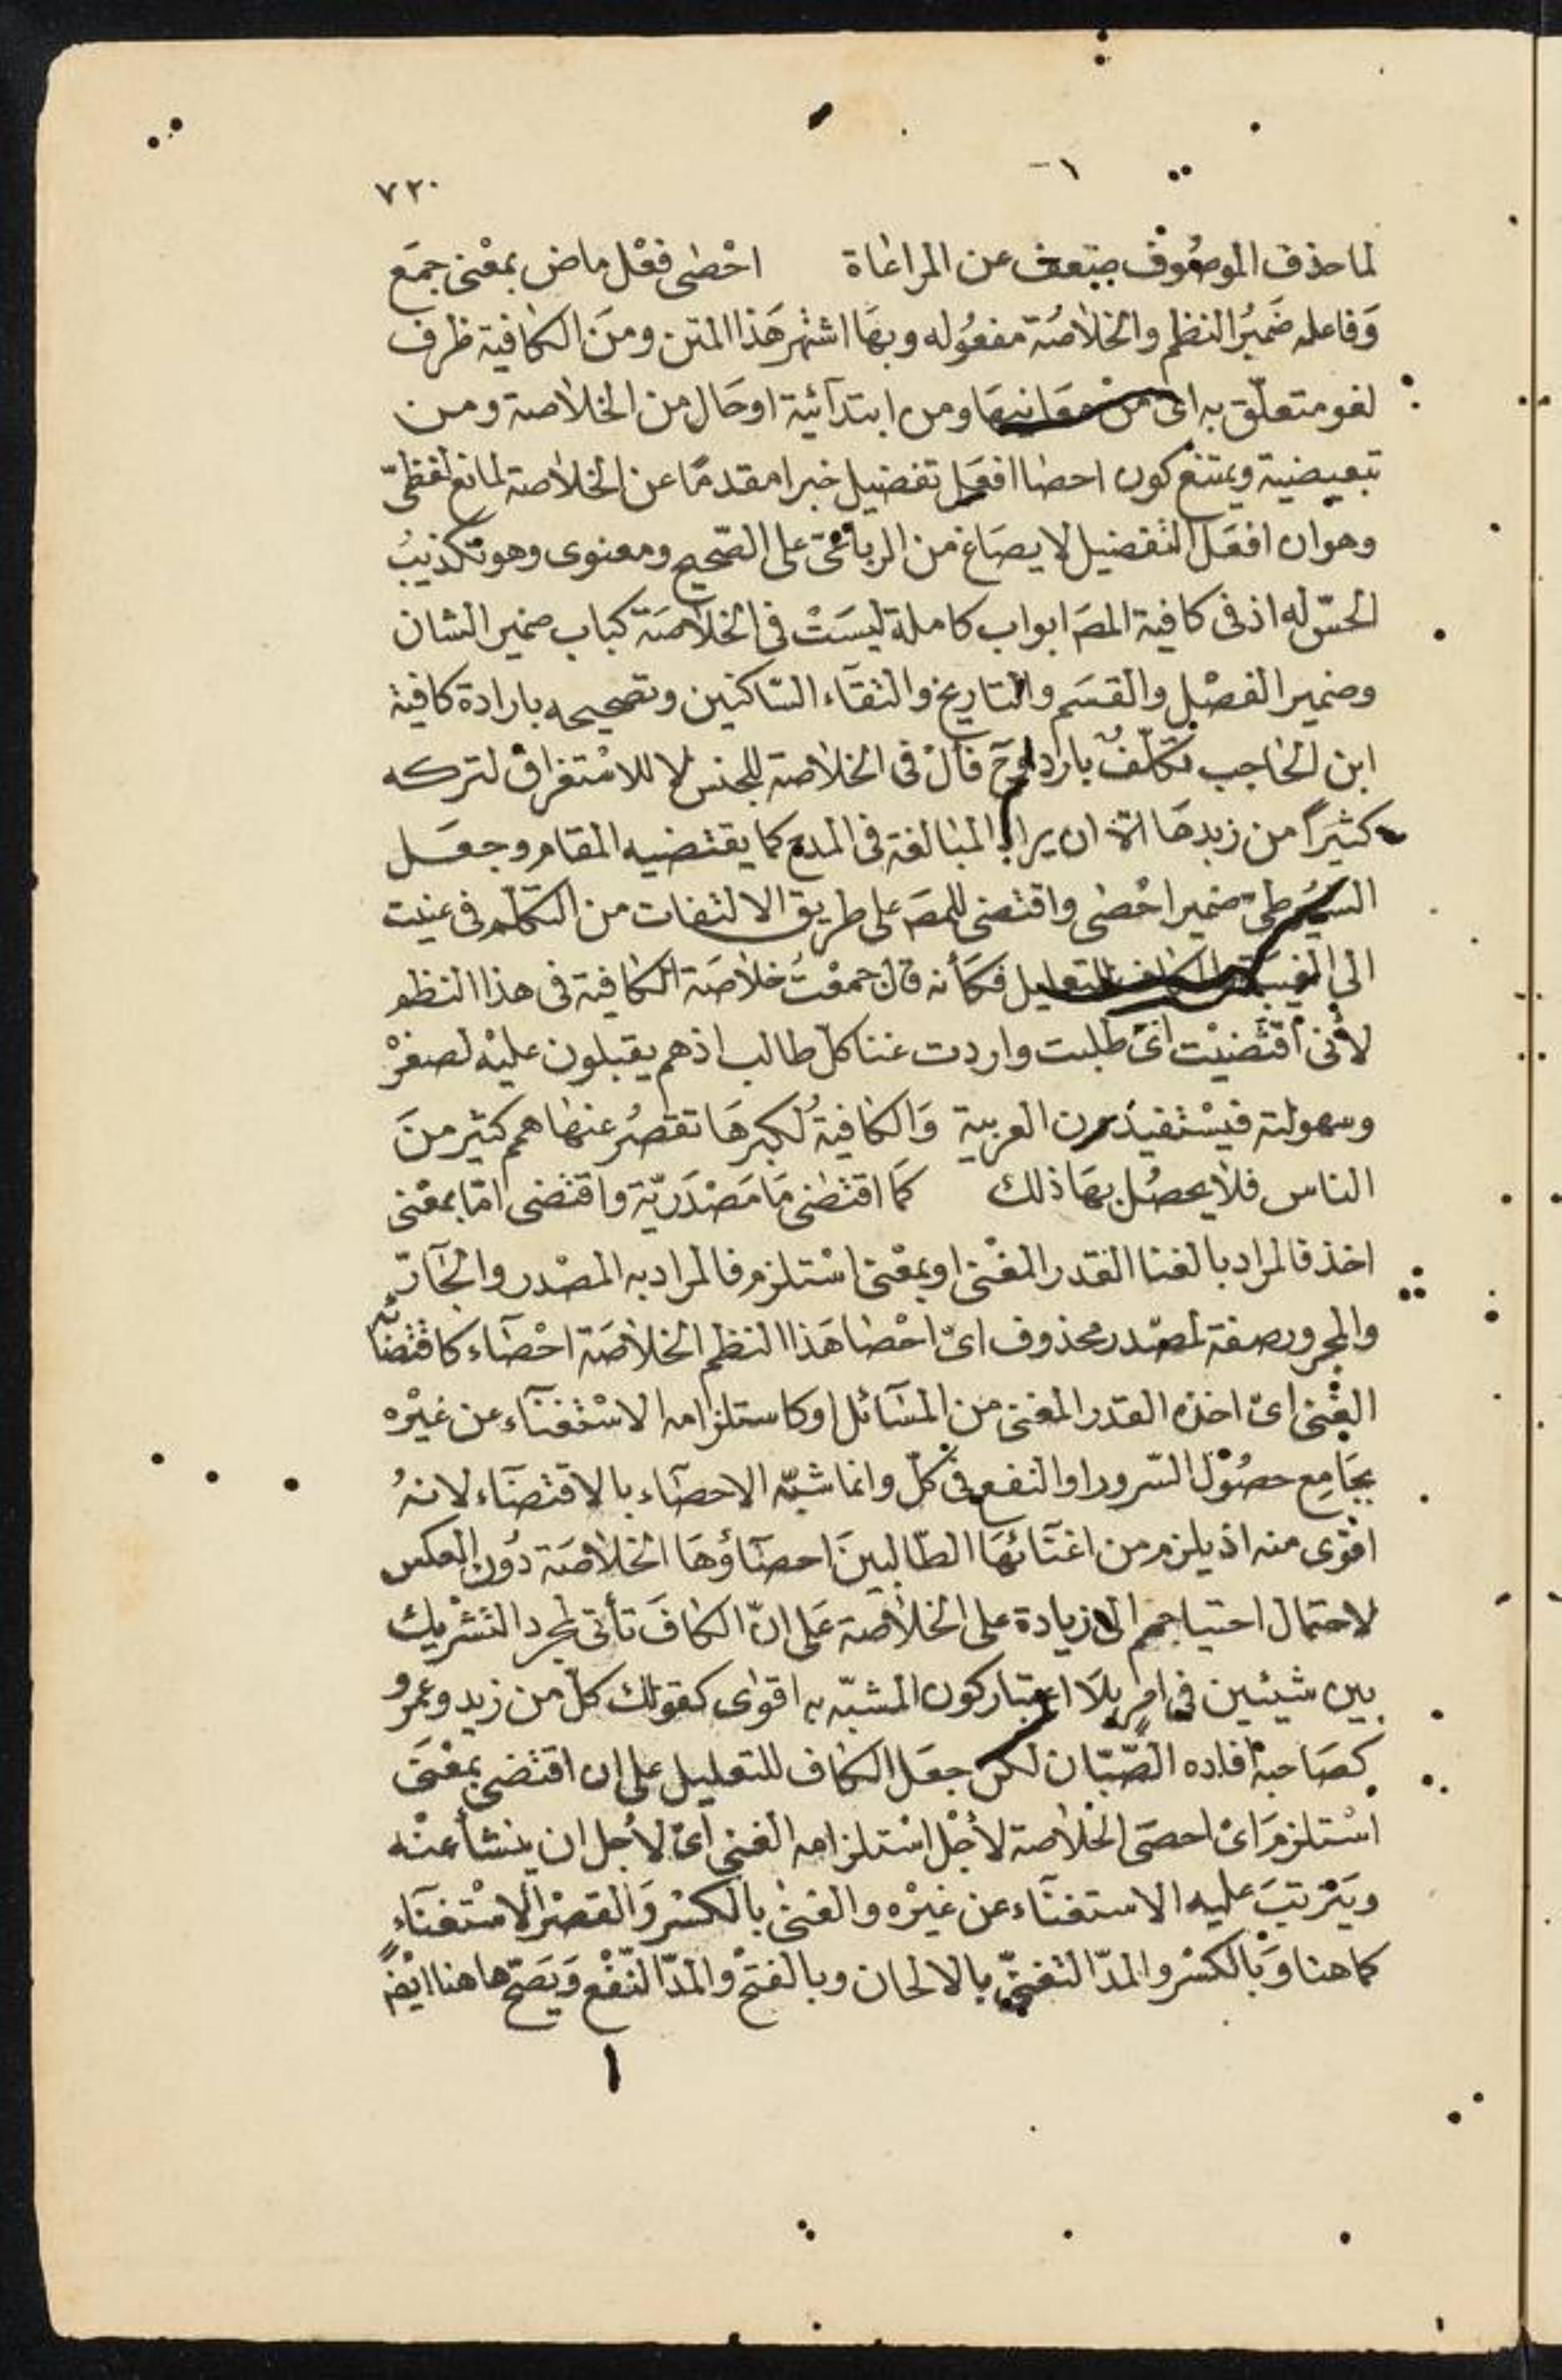 ٧٢٠
لما حذف الموصوف ضعف عن المراعاة احْصٰى فعْل ماض بمعْنى جمَع
وَفاعله ضَميرُ النظم والخلاصَة مفعُوله وبهَا اشتهر هَذا المتن ومنَ الكافية ظرف
لغو متعلّق به اىْ منْ معَانيهَا ومن ابتدآئية او حَال من الخلاصة ومن
تبعيضية ويمتنع كون احصا افعَل تفضيل خبرا مقدمًا عن الخلاصة لمانع لفظىّ
وهو ان افعَل التفضيل لا يصَاغ من الرباعىّ على الصّحيح ومعنوى وهو تكذيبُ
الحسّ له اذ فى كافية المصَ ابواب كاملة ليسَتْ فى الخلاصَة كباب ضمير الشان
وضمير الفصْل والقسَم والتاريخ والتقآء السّاكنين وتصحيحه بارادة كافية
ابن الحَاجب تكلّفٌ بارد وحَ فاَلْ فى الخلاصة للجنس لا للاسْتغراق لتركه
كثيَرًا من زبدها الّا ان يراد المبالغة فى المدح كما يقتضيه المقام وجعَل
السيُوطى ضمير احْصٰى واقتضى للمصَ على طريق الالتفات من التكلّم فى عنيت
الى الغيبَة والكاف للتعليل فكأنه قال جمعْتُ خلاصَة الكافية فى هذا النظم
لأنى اقتضيْت اىْ طلبت واردت غنا كلّ طالب اذ هم يقبلون عليْه لصغرْ
وسهولته فيسْتفيدون العربية وَالكافيةُ لكبرهَا تقصُر عنها همم كثير منَ
الناس فلا يحصُل بهَا ذلك كمَا اقتضٰى مَا مَصْدَريّة واقتضى امّا بمعْنى
اخذ فالمراد بالغنا القدر المغْنى او بمعْنى اسْتلزم فالمراد به المصْدر والجَآرّ
والمجرور صفة لمصْدر محذوف اىْ احْصا هَذا النظم الخلاصَة احْصَآء كاقتضَآئه
الغْنى اىْ اخذه القدر المغنى من المسَآئل او كاستلزامه الاسْتغنَآء عن غيْره
بجَامِع حصُوْل السّرور او النفع فى كلّ وانما شبّه الاحصَآء بالاقتضَآء لانهُ
اقوْى منه اذ يلزم من اغنَآئهَا الطّالبينَ احصَآؤهَا الخلاصَة دُون العكس
لاحتمال احتياجهم الى زيادة على الخلاصَة عَلى انّ الكافَ تأتى لمجرد التشْريك
بين شيئين فى امرٍ بلَا اعتبار كون المشبّه به اقوٰى كقولك كلّ من زيد وعمرو
كصَاحبهْ افاده الصّبّان لكن جعَل الكاف للتعليل على ان اقتضى بمعْنَى
اسْتلزمَ اىْ احصَى الخلاصة لأجْل اسْتلزامه الغنى اىْ لأجل ان ينشأ عنْه
ويَترتبَ عليه الاستغنَآء عن غيْره والغنى بالكسْر وَالقصْر الاسْتغنَآء
كما هنا وَبالكسْر والمدّ التغنّى بالالحان وبالفتحْ والمدّ النّفْع وَيَصّح هاهنا ايْضً